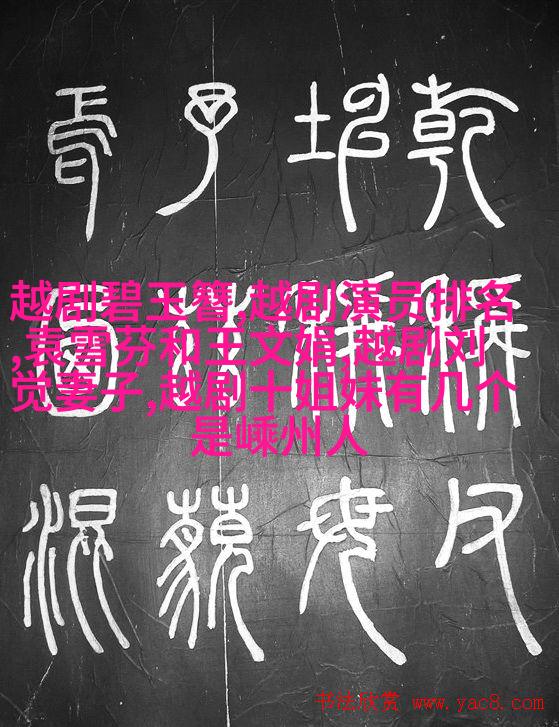 乾父
坤母
予藐
焉混
越剧碧玉簪,越剧演员排名
,袁雪芬和王文娟,越剧刘
觉妻子,越剧十姐妹有几个
是嵊州人
书法欣赏 www.yac8.com